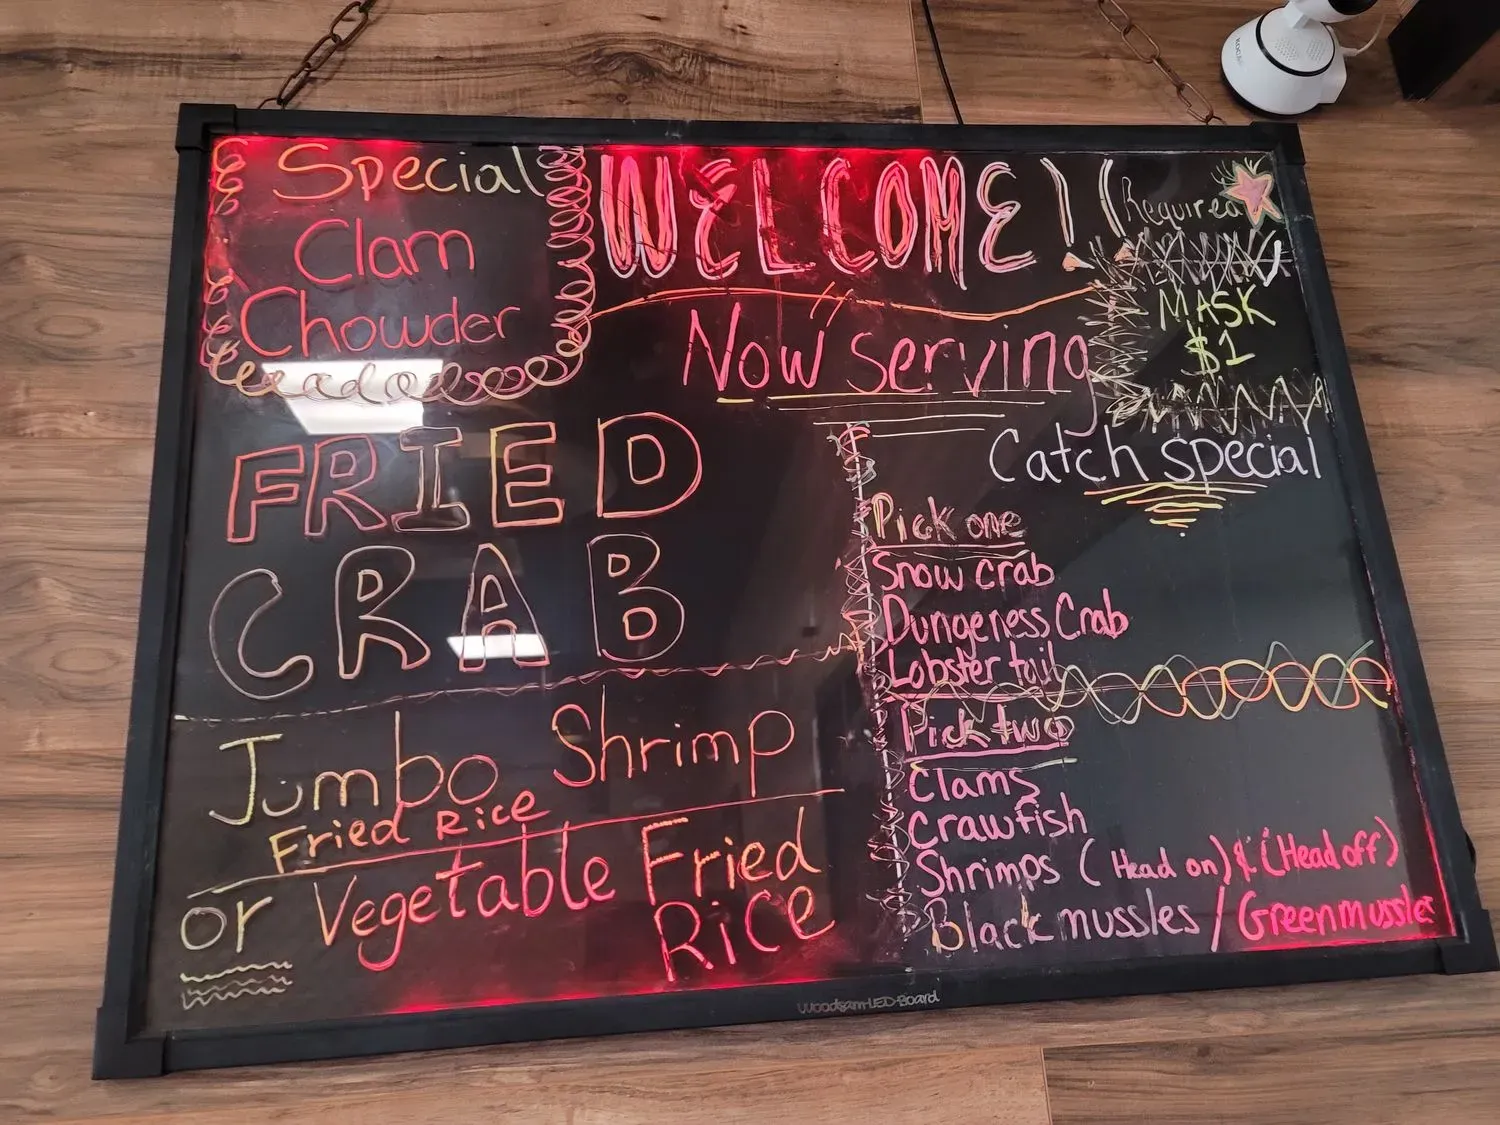 Special
Clam
Chowder
WELCOME!!
Required
MASK
$1
Now serving
FRIED
CRAB
Jumbo Shrimp
Fried Rice
or Vegetable Fried
Rice
Catch special
Pick one
Snow crab
Dungeness Crab
Lobster tail
Pick two
Clams
Crawfish
Shrimps (Head on) & (Head off)
Black mussles / Greenmussles
Woodsam-LED-Board